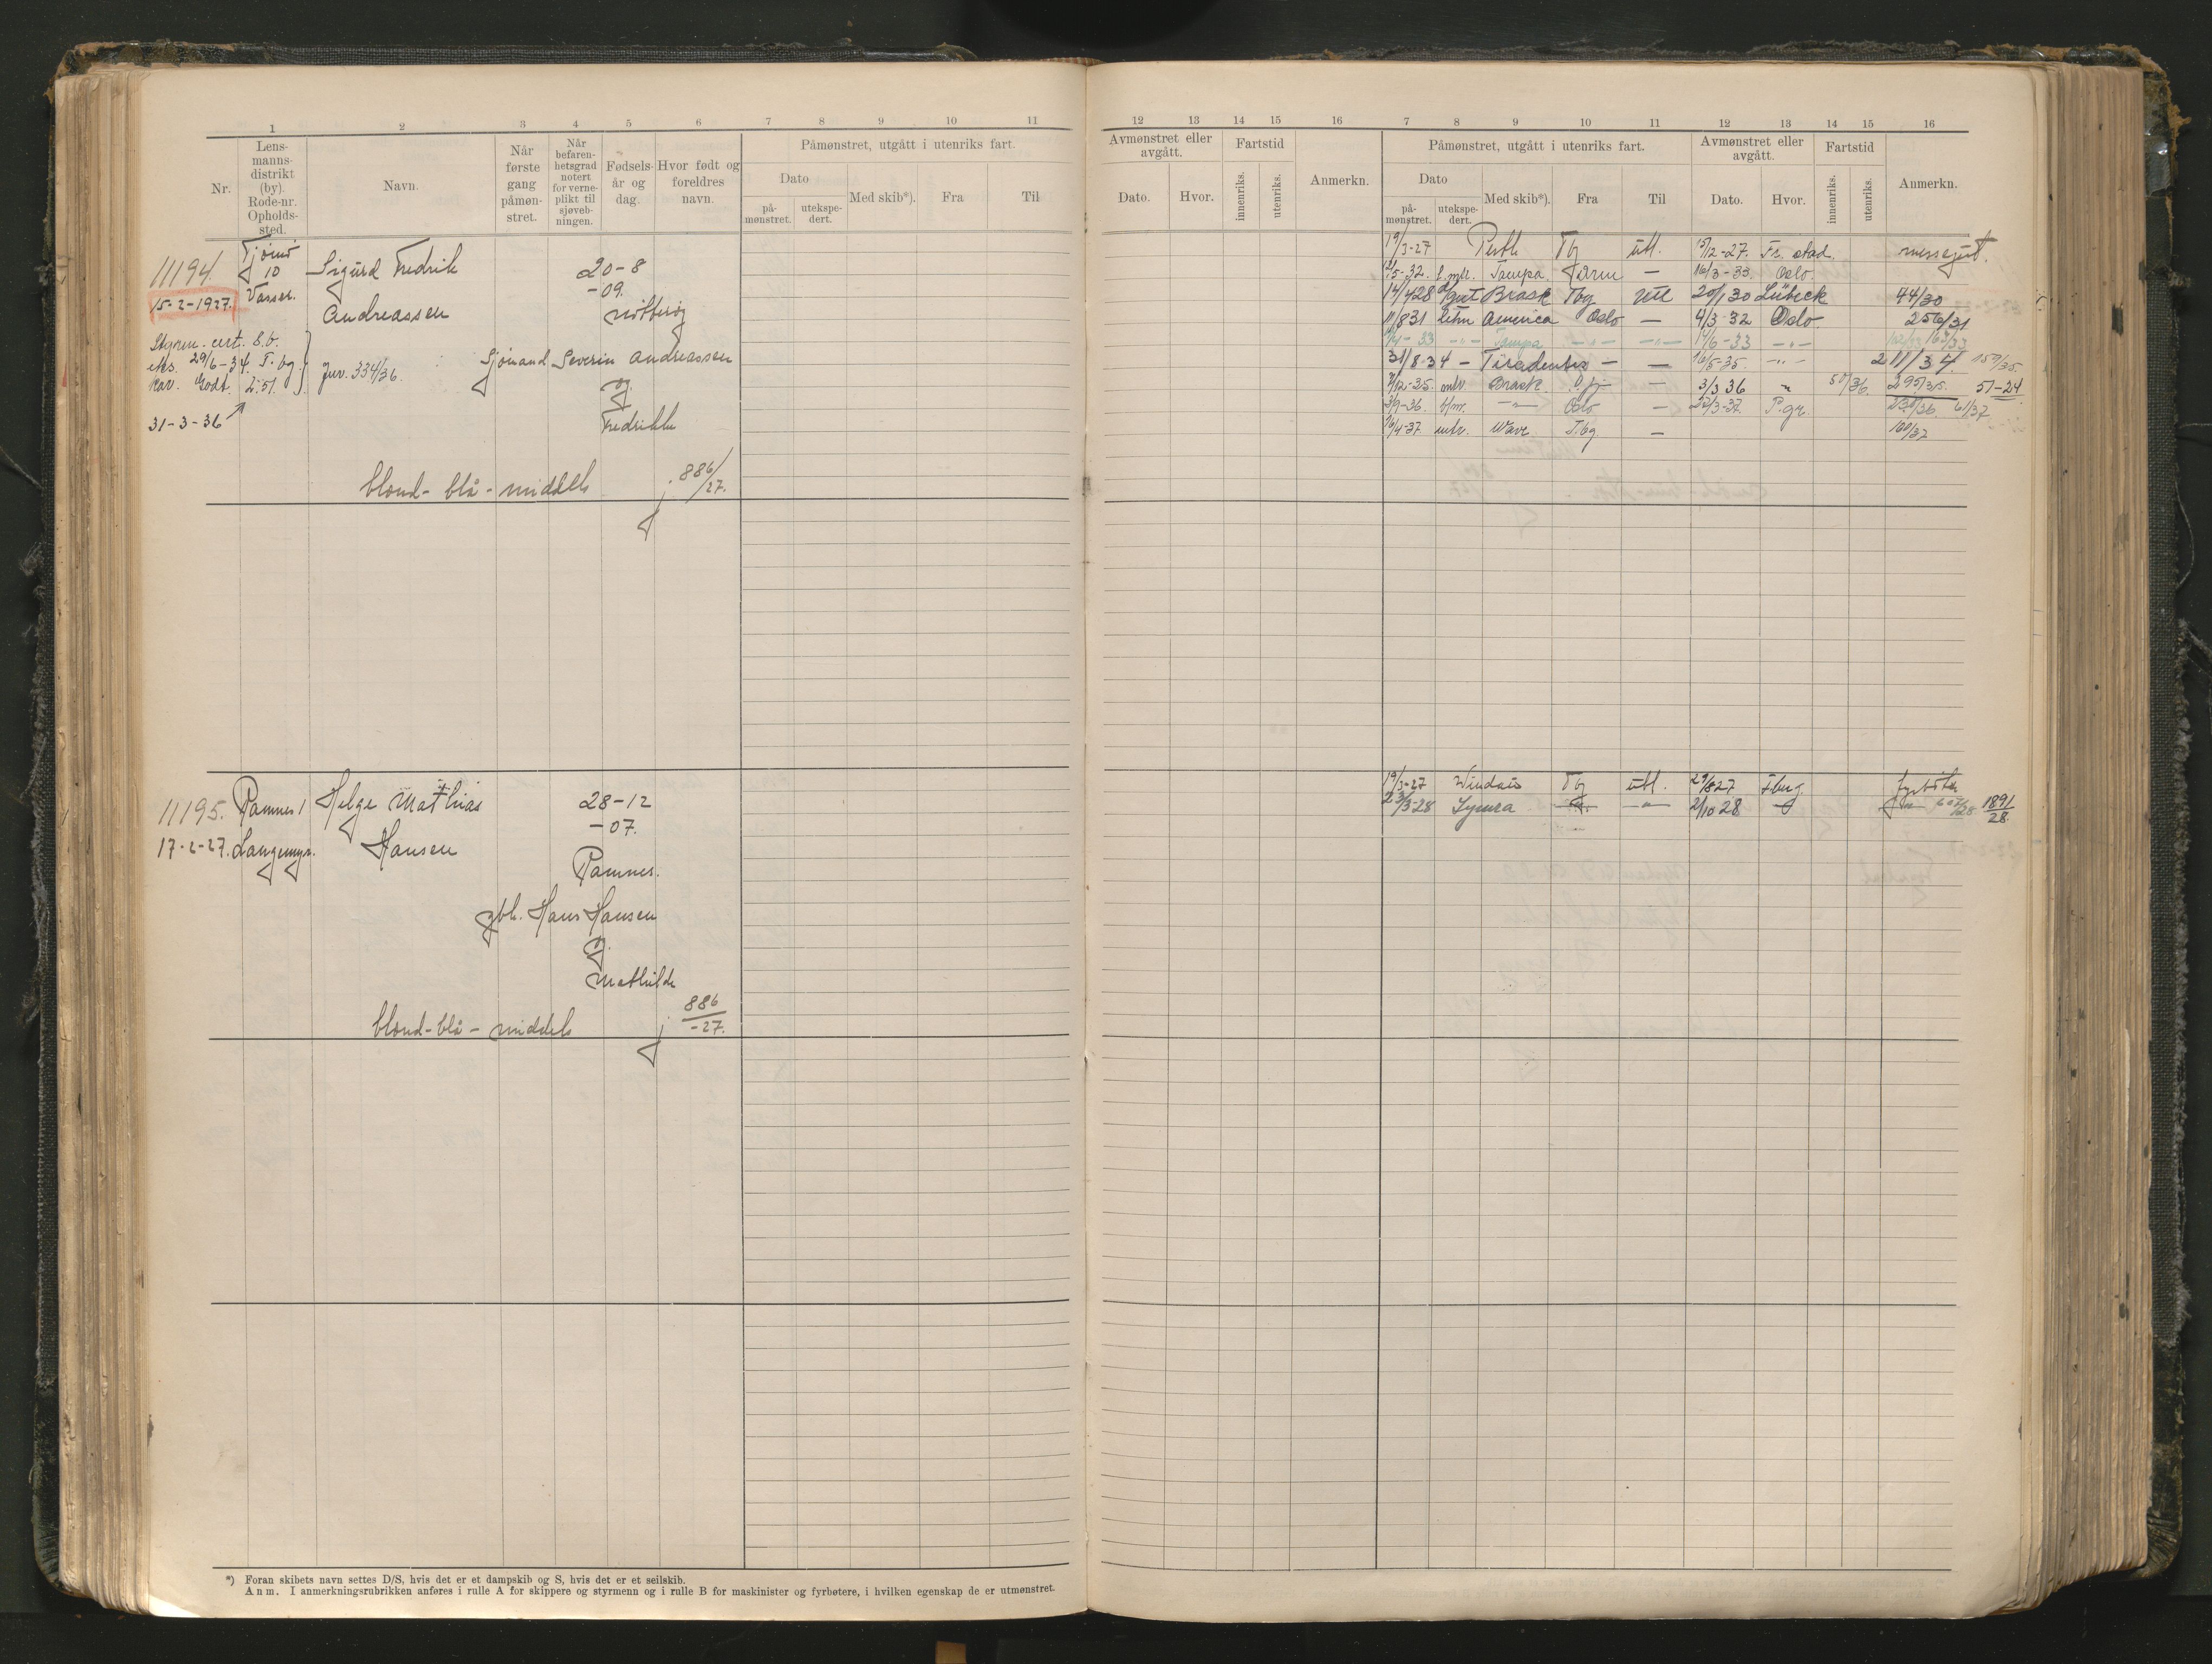 1 2 3 4 5 6 7 8 9 10 11
Nr. Lens-manns-distrikt (by). Rode-nr. Opholds-sted. Navn. Når første gang påmøn-stret. Når befaren-hetsgrad notert for verne-plikt til sjøveb-ningen. Fødsels-år og dag. Hvor født og foreldres navn. Påmønstret, utgått i utenriks fart.
Dato Med skib*). Fra Til
på-mønstret. utekspe-dert.
11194. Tjømø 10 Sigurd Fredrik 20-8
15-2-1927. Vasser. -09.
Andreassen Nøtterøy
Styrm. cert. S.b.
eks. 29/6-34. T.bg
Kar. Godt. 2.51. Jnr. 334/36. Sjømand Severin Andreassen
og
31-3-36 Fredrikke
blond- blå - middels j. 886/27.
11195. Ramnes 1 Helge Mathias 28-12
-07.
17-2-27. Langemyr. Hansen
Ramnes.
gbr. Hans Hansen
og
Mathilde
blond-blå - middels j 886/-27.
*) Foran skibets navn settes D/S, hvis det er et dampskib og S, hvis det er et seilskib.
Anm. I anmerkningsrubrikken anføres i rulle A for skippere og styrmenn og i rulle B for maskinister og fyrbøtere, i hvilken egenskap de er utmønstret.
12 13 14 15 16 7 8 9 10 11 12 13 14 15 16
Avmønstret eller avgått. Fartstid Anmerkn. Påmønstret, utgått i utenriks fart. Avmønstret eller avgått. Fartstid Anmerkn.
Dato. Hvor. innenriks. utenriks. Dato Med skib*). Fra Til Dato. Hvor. innenriks. utenriks.
på-mønstret. utekspe-dert.
19/3-27 Perth Tbg utl. 15/12-27. Fr. stad. messegut.
5-32. Tampa — 16/3-33. Oslo
14/428 Brask Tbg Utl 20/1 30 Lübeck 44/30
11/831 America Oslo — 4/3-32 Oslo 256/31
33 -"- Tampa -"- -"- 14/6-33 -"- 163/33
31/8-34 - Tiradentes — — 16/5-35. -"- 211/34 159/35.
12-35. Brask — 3/3 36 " 50/36. 295/35. 51-24
3/9-36. -"- Oslo — 22/3-37. P.gr. 61/37
16/4-37. Wave T.bg. — 100/37
19/3-27 Tbg utl. 29/827 fyrbøter
23/3-28 -"- 2/10 28 1891/28.